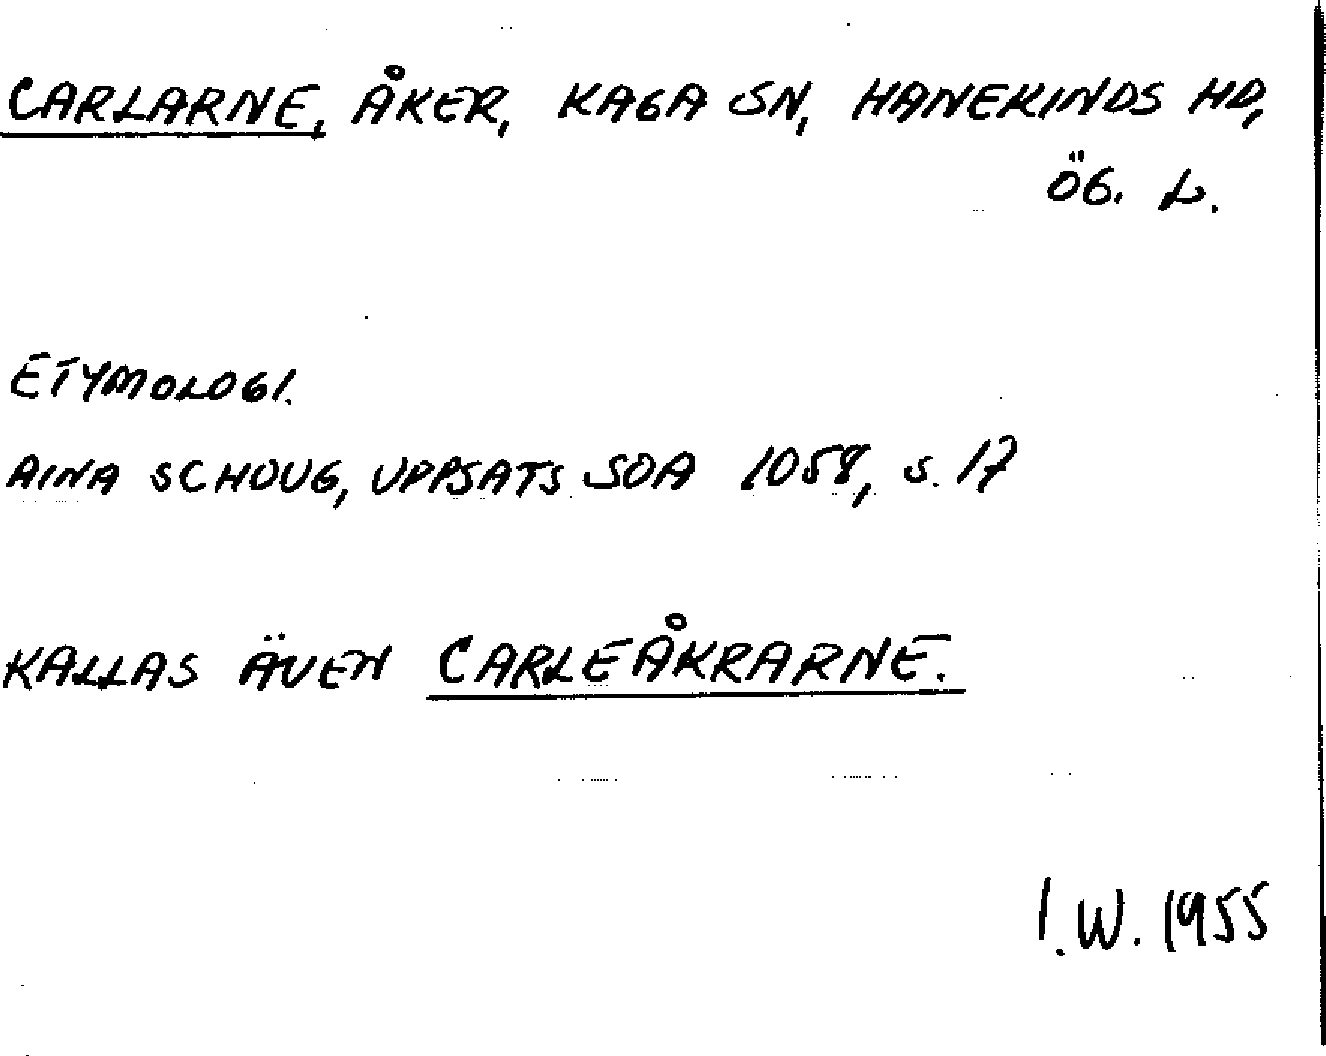 CARLARNE, ÅKER, KAGA SN, HANEKINDS HD,
ÖG. L.
ETYMOLOGI.
AINA SCHOUG, UPPSATS SOA 1058, s. 17
KALLAS ÄVEN CARLEÅKRARNE.
I.W. 1955